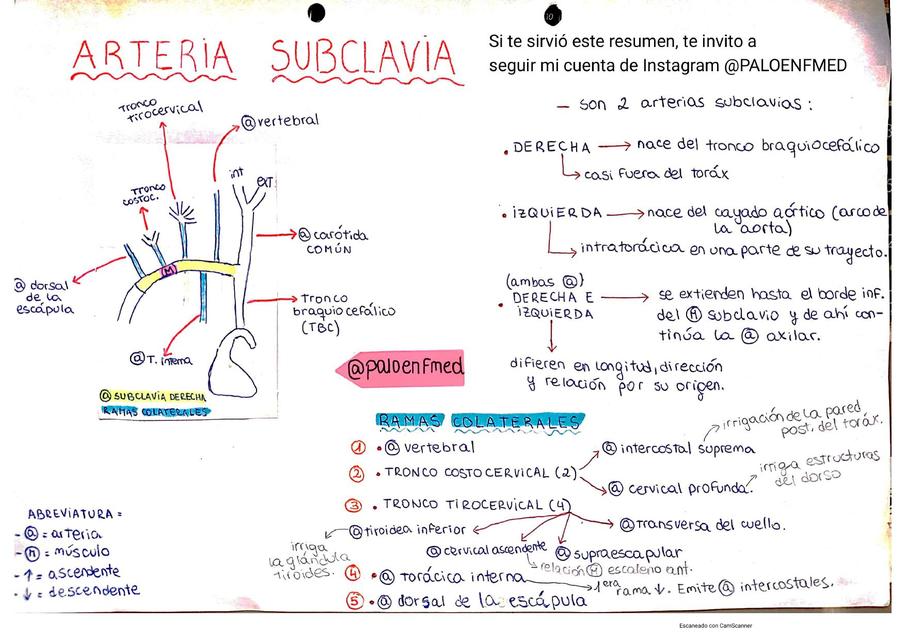 ARTERIA SUBCLAVIA
Si te sirvió este resumen, te invito a
seguir mi cuenta de Instagram @PALOENFMED
10
Tronco
tirocervical
ⓐ vertebral
int
ext
Tronco
costoc.
ⓐ carótida
COMÚN
M
ⓐ dorsal
de la
escápula
Tronco
braquiocefálico
(TBC)
ⓐ T. interna
ⓐ SUBCLAVIA DERECHA
RAMAS COLATERALES
@paloenfmed
— son 2 arterias subclavias:
• DERECHA → nace del tronco braquiocefálico
↳ casi fuera del toráx
• IZQUIERDA → nace del cayado aórtico (arco de
la aorta)
↳ intratorácica en una parte de su trayecto.
(ambas ⓐ)
• DERECHA E
IZQUIERDA → se extienden hasta el borde inf.
del Ⓜ subclavio y de ahí con-
tinúa la ⓐ axilar.
difieren en longitud, dirección
y relación por su origen.
RAMAS COLATERALES
① • ⓐ vertebral
② • TRONCO COSTOCERVICAL (2)
ⓐ intercostal suprema
irrigación de la pared
post. del toráx.
ⓐ cervical profunda.
irriga estructuras
del dorso
③ • TRONCO TIROCERVICAL (4)
ⓐ tiroidea inferior
irriga
la glándula
tiroides.
ⓐ cervical ascendente
relación Ⓜ escaleno ant.
ⓐ supraescapular
ⓐ transversa del cuello.
④ • ⓐ torácica interna → 1era rama ↓. Emite ⓐ intercostales.
⑤ • ⓐ dorsal de la escápula
ABREVIATURA =
- ⓐ = arteria
- Ⓜ = músculo
- ↑ = ascendente
- ↓ = descendente
Escaneado con CamScanner